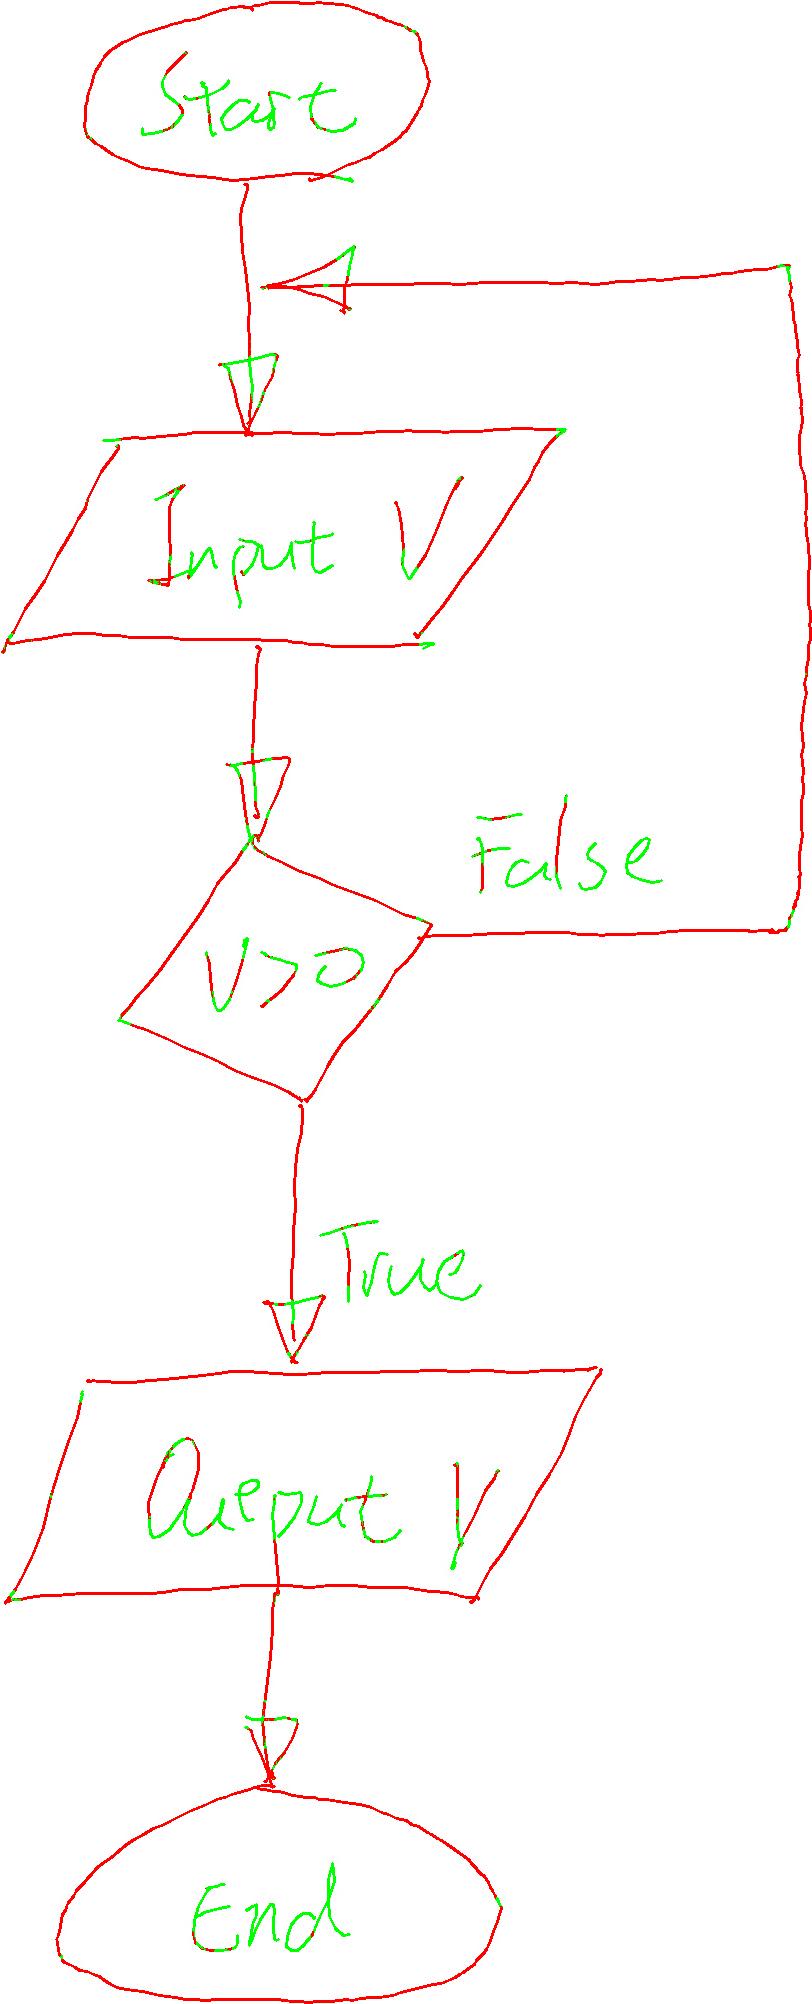 Start
Input V
False
V>0
True
Output V
End